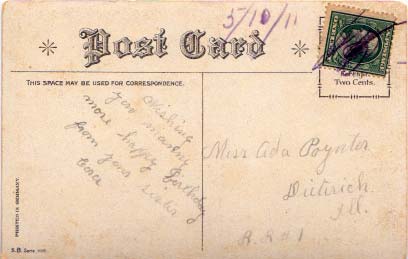 5/10/11
Post Card
THIS SPACE MAY BE USED FOR CORRESPONDENCE.
Two Cents.
Wishing
you manny
more happy Birthday
from your sister
Cora
Miss Ada Poynter
Dieterich
Ill.
R.R #1
PRINTED IN GERMANY.
S.B. Serie